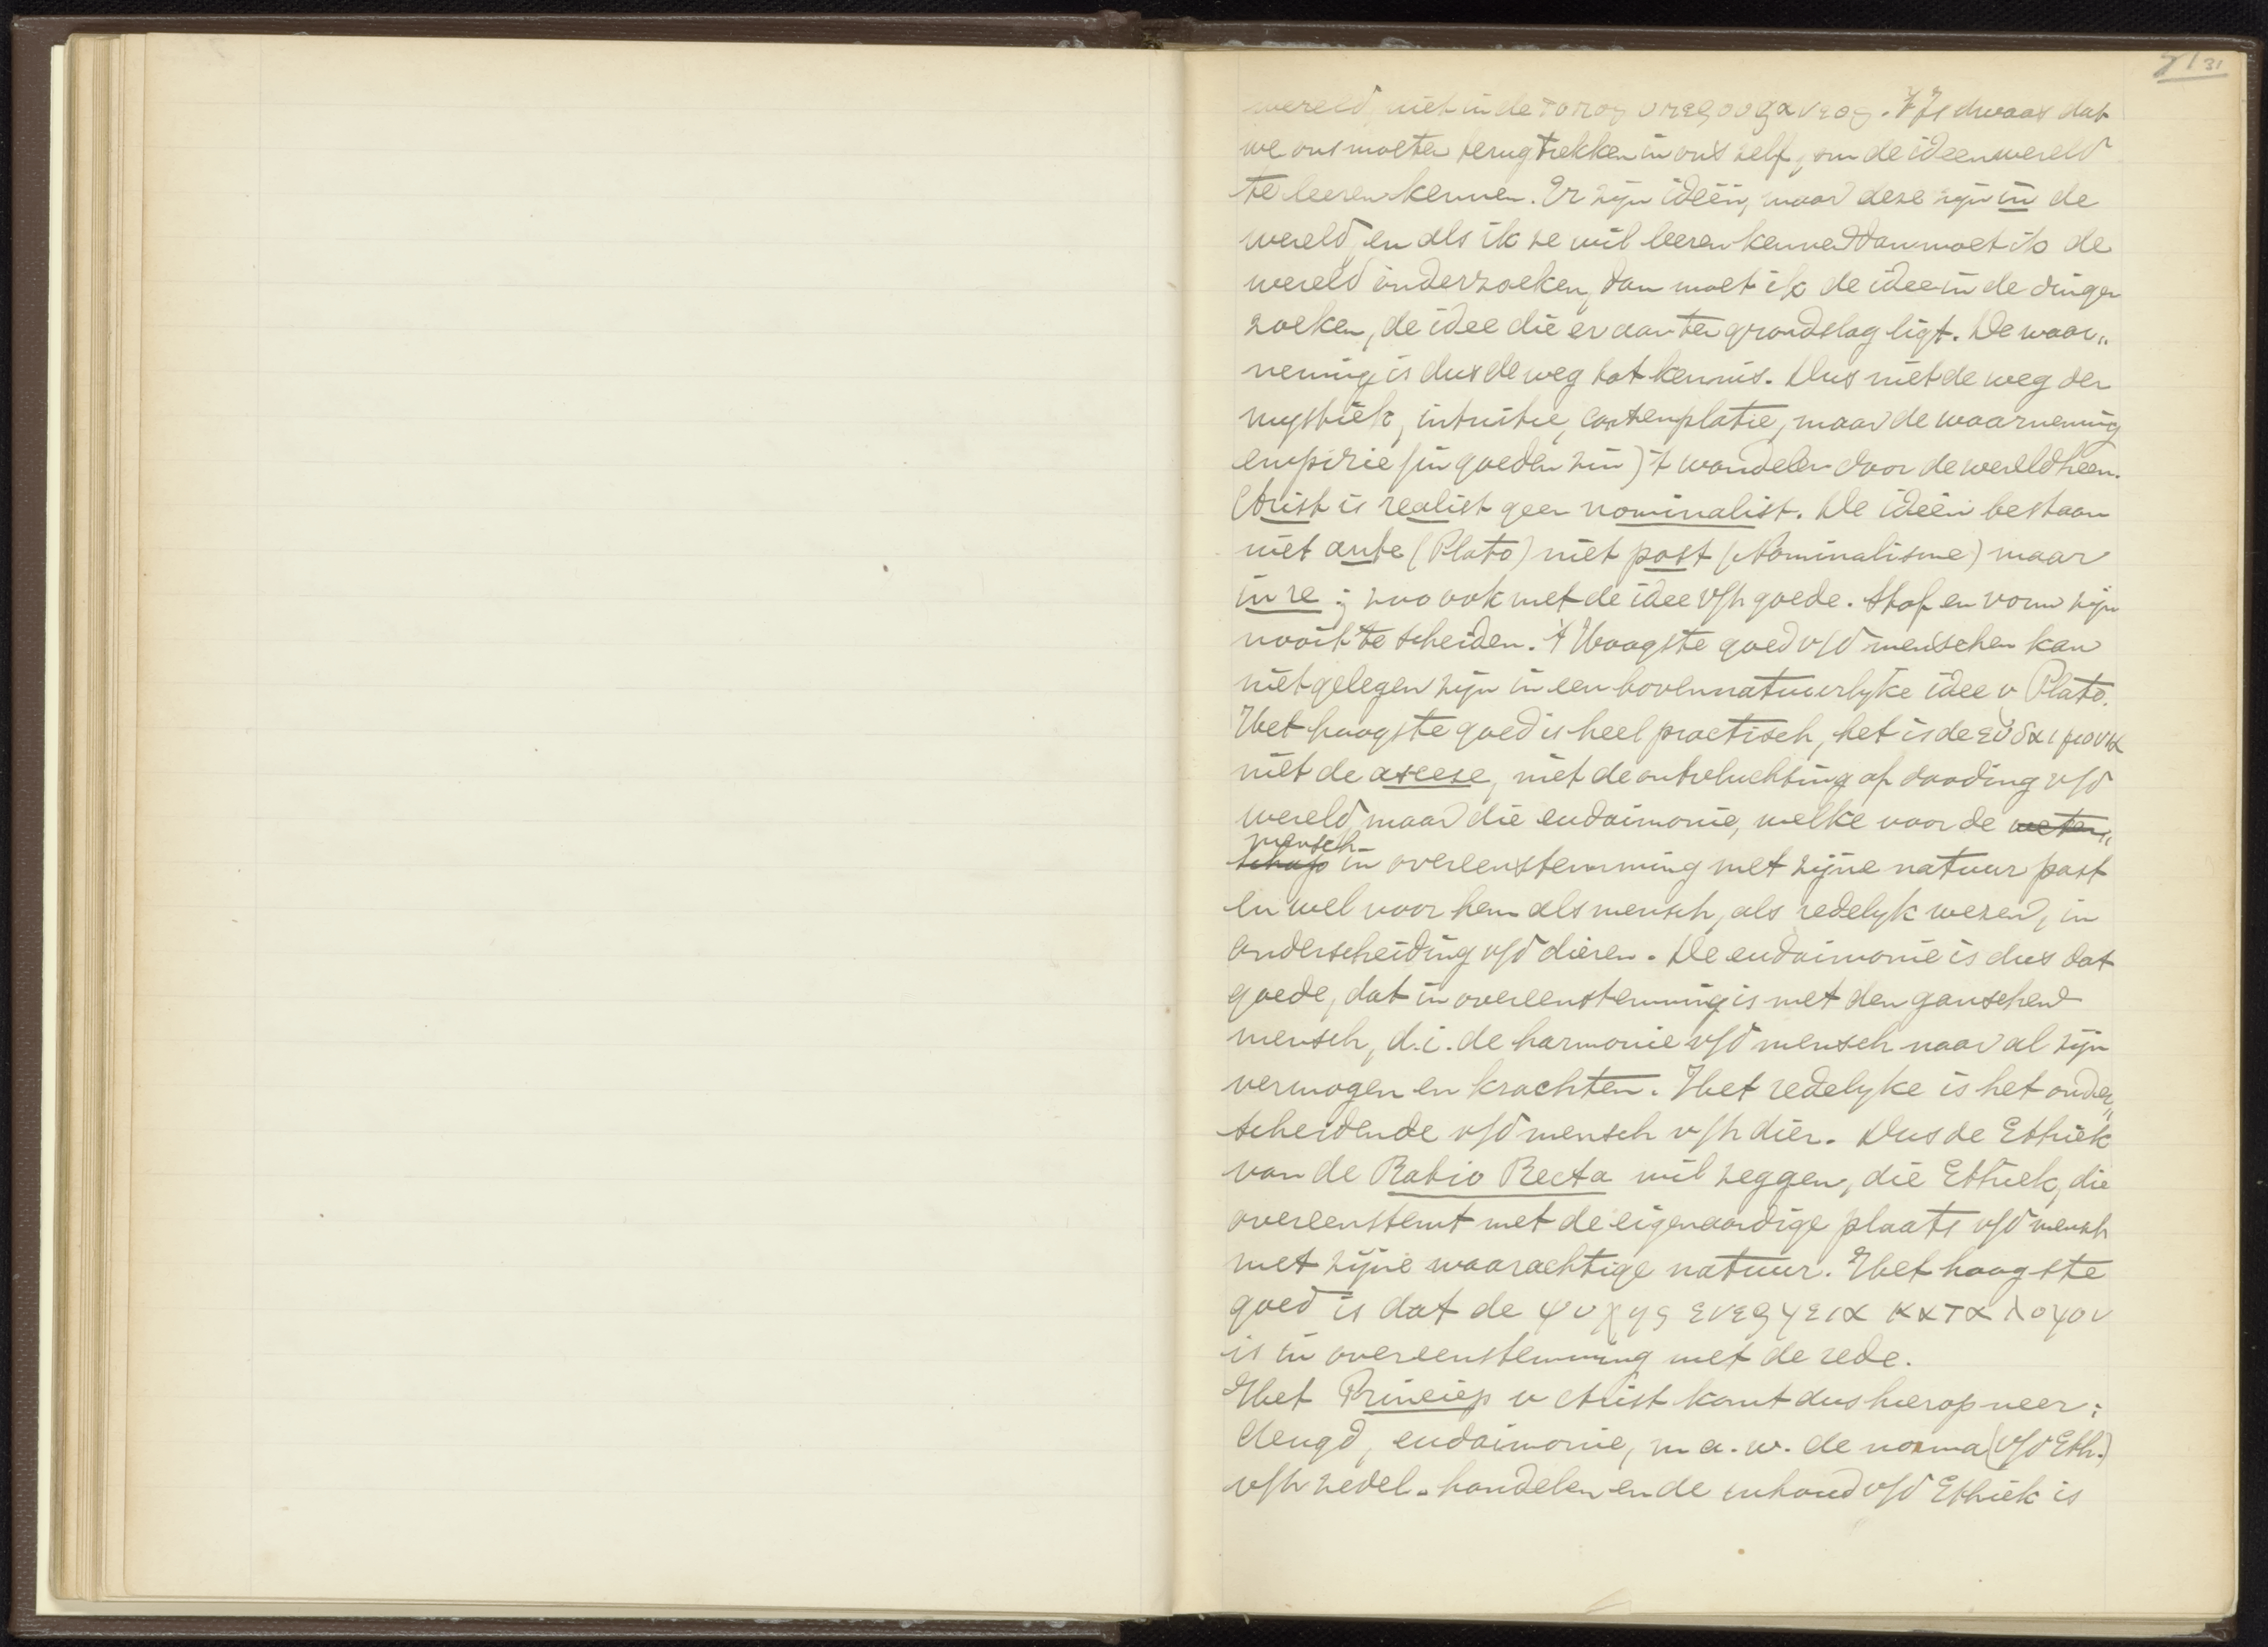 71 31
wereld, niet in de τοπος υπερουρανεος. 't Is dwaas dat
we ons moeten terugtrekken in ons zelf, om de ideenwereld
te leeren kennen. Er zijn ideën, maar deze zijn in de
wereld, en als ik ze wil leeren kennen dan moet ik de
wereld onderzoeken, dan moet ik de idee in de dingen
zoeken, de idee die er aan ten grondslag ligt. De waar„
neming is dus de weg tot kennis. Dus niet de weg der
mystiek, intuitie, contemplatie, maar de waarneming
empirie (in goeden zin) 't wandelen door de wereld heen.
Arist is realist geen nominalist. De ideën bestaan
niet ante (Plato) niet post (Nominalisme) maar
in re; zoo ook met de idee v/h goede. Stof en vorm zijn
nooit te scheiden. 't Hoogste goed v/d menschen kan
niet gelegen zijn in een bovennatuurlyke idee v Plato.
Het hoogste goed is heel practisch, het is de ευδαιμονια
niet de ascese, niet de ontvluchting of dooding v/d
wereld maar die eudaimonie, welke voor de weten„
mensch
schap in overeenstemming met zijne natuur past
en wel voor hem als mensch, als redelyk wezen, in
onderscheiding v/d dieren. De eudaimonie is dus dat
goede, dat in overeenstemming is met den ganschen
mensch, d.i. de harmonie v/d mensch naar al zijn
vermogen en krachten. Het redelyke is het onder„
scheidende v/d mensch v/h dier. Dus de Ethiek
van de Ratio Recta wil zeggen, die Ethiek, die
overeenstemt met de eigenaardige plaats v/d mensch
met zijne waarachtige natuur. Het hoogste
goed is dat de ψυχης ενεργεια κατα λογον
is in overeenstemming met de rede.
Het Princiep v Arist komt dus hierop neer:
deugd, eudaimonie, m.a.w. de norma (v/d Eth.)
v/h zedel. handelen en de inhoud v/d Ethiek is